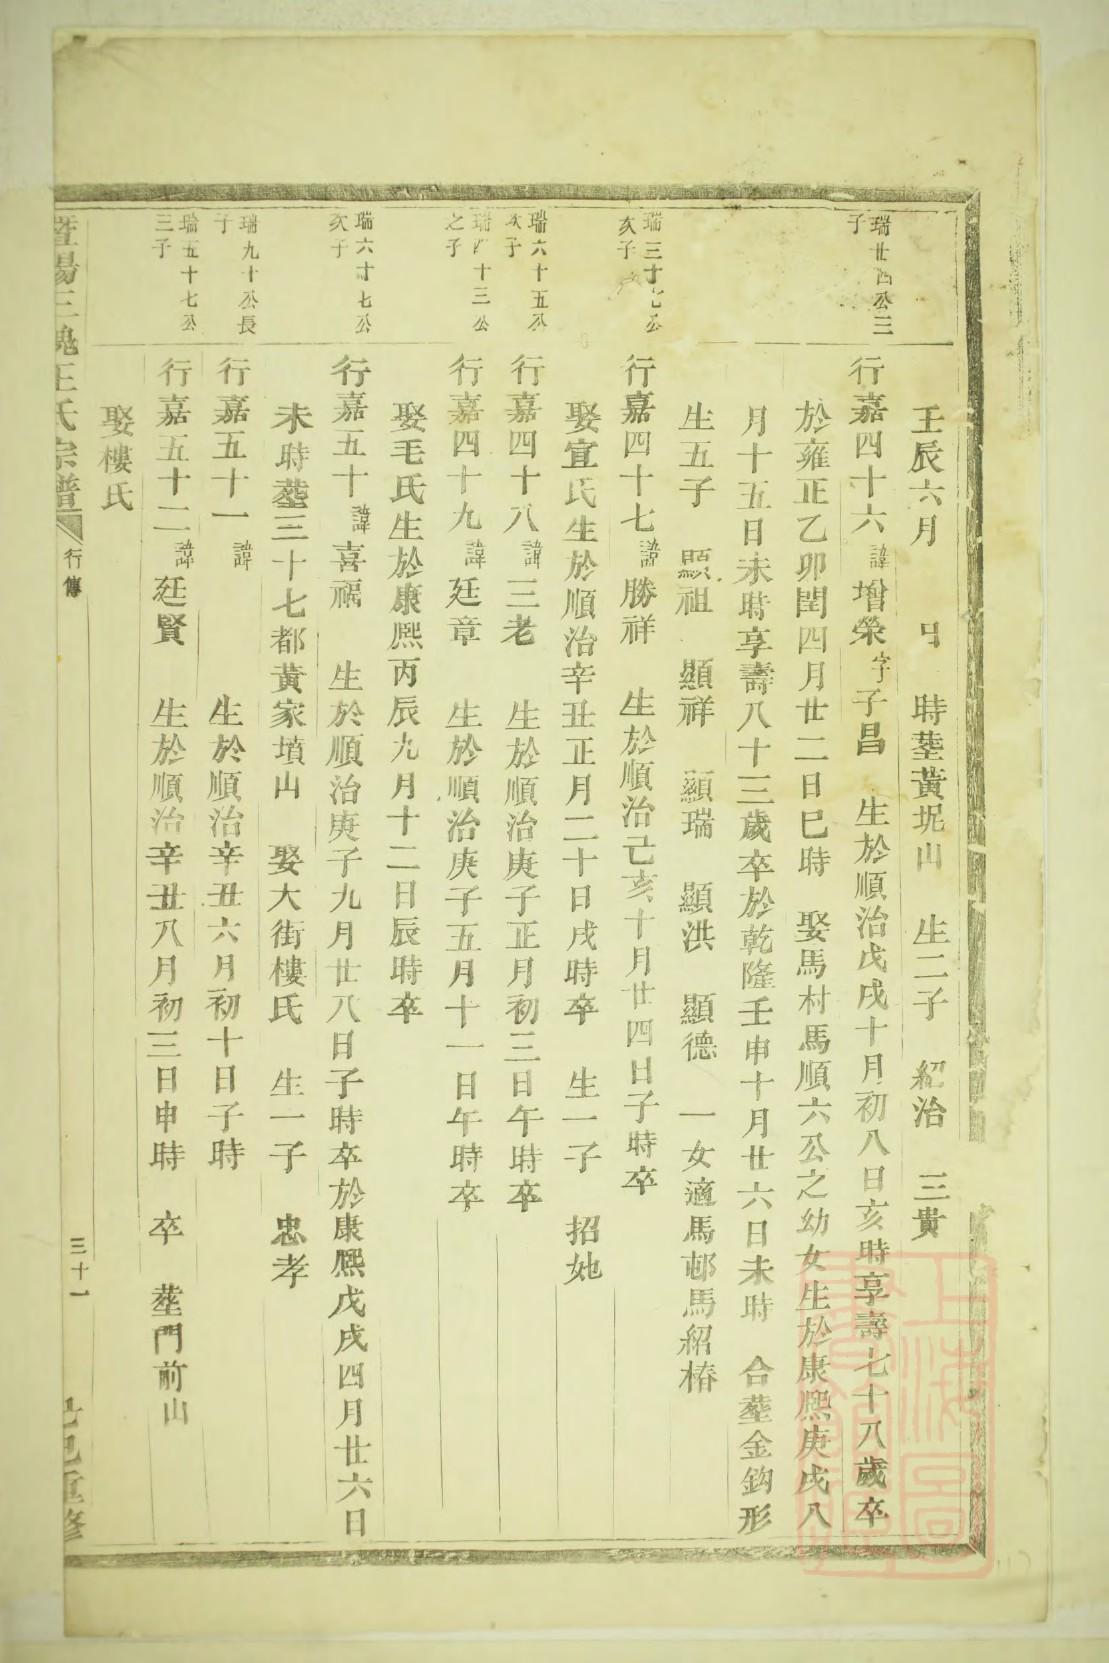 壬辰六月 日 時塟黃坭山 生二子 紀治 三貴
瑞廿四公三
子
行嘉四十六諱增榮字子昌 生於順治戊戌十月初八日亥時享壽七十八歲卒
於雍正乙卯閏四月廿二日巳時 娶馬村馬順六公之幼女生於康熙庚戌八
月十五日未時享壽八十三歲卒於乾隆壬申十月廿六日未時 合塟金鈎形
生五子 顯祖 顯祥 顯瑞 顯洪 顯德 一女適馬邨馬紹椿
瑞三十七公
次子
行嘉四十七諱勝祥 生於順治己亥十月廿四日子時卒
娶宣氏生於順治辛丑正月二十日戌時卒 生一子 招她
瑞六十五公
次子
行嘉四十八諱三老 生於順治庚子正月初三日午時卒
瑞四十三公
之子
行嘉四十九諱廷章 生於順治庚子五月十一日午時卒
娶毛氏生於康熙丙辰九月十二日辰時卒
瑞六十七公
次子
行嘉五十諱喜福 生於順治庚子九月廿八日子時卒於康熙戊戌四月廿六日
未時塟三十七都黃家墳山 娶大街樓氏 生一子 忠孝
瑞九十公長
子
行嘉五十一諱 生於順治辛丑六月初十日子時
瑞五十七公
三子
行嘉五十二諱廷賢 生於順治辛丑八月初三日申時 卒 塟門前山
娶樓氏
暨陽三槐王氏宗譜 行傳 三十一 己巳重修
上海圖
書館藏